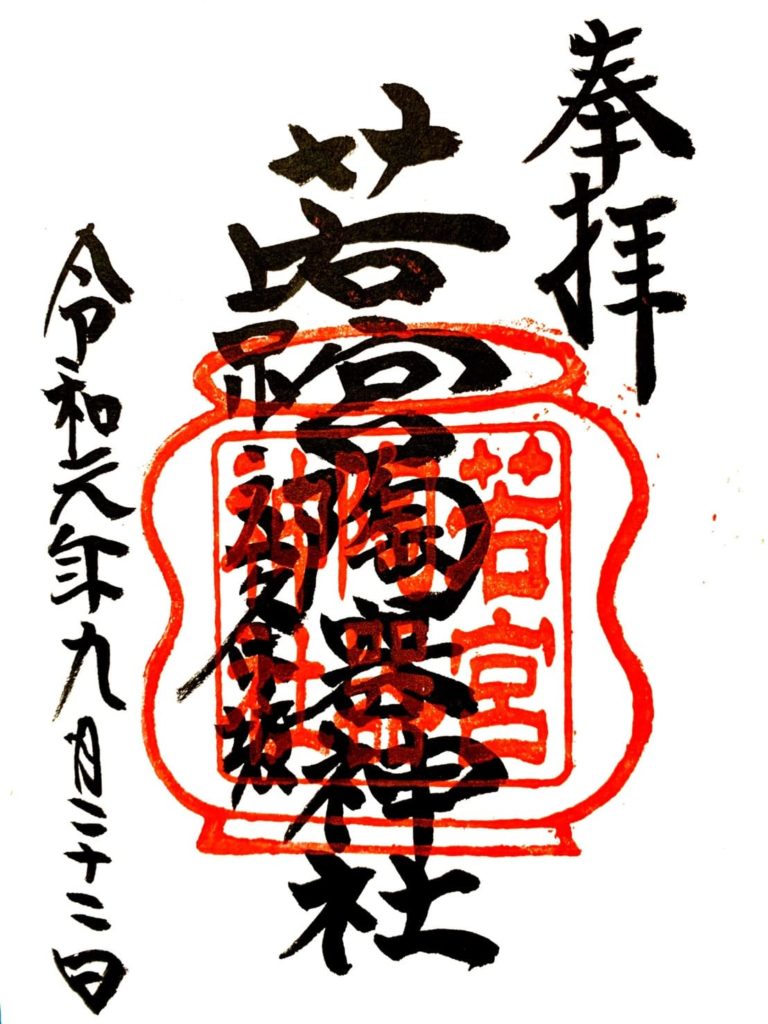 奉拝
若宮陶器神社
若宮
陶器
神社
令和元年九月二十二日